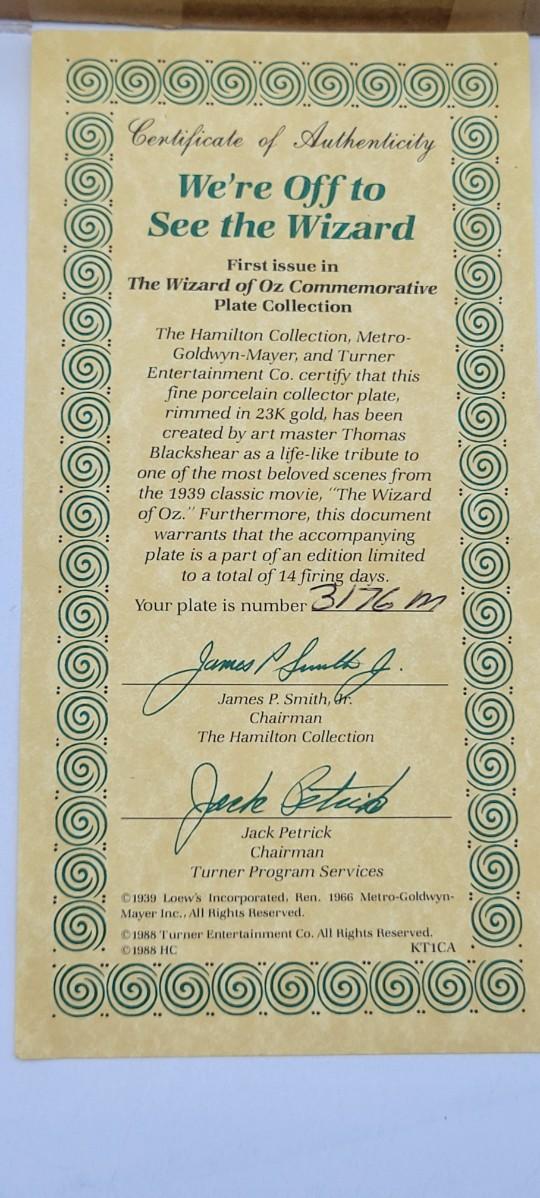 Certificate of Authenticity
We're Off to
See the Wizard
First issue in
The Wizard of Oz Commemorative
Plate Collection
The Hamilton Collection, Metro-
Goldwyn-Mayer, and Turner
Entertainment Co. certify that this
fine porcelain collector plate,
rimmed in 23K gold, has been
created by art master Thomas
Blackshear as a life-like tribute to
one of the most beloved scenes from
the 1939 classic movie, "The Wizard
of Oz." Furthermore, this document
warrants that the accompanying
plate is a part of an edition limited
to a total of 14 firing days.
Your plate is number 3176 M
James P Smith Jr.
James P. Smith, Jr.
Chairman
The Hamilton Collection
Jack Petrick
Jack Petrick
Chairman
Turner Program Services
©1939 Loew's Incorporated, Ren. 1966 Metro-Goldwyn-
Mayer Inc., All Rights Reserved.
©1988 Turner Entertainment Co. All Rights Reserved.
©1988 HC KT1CA